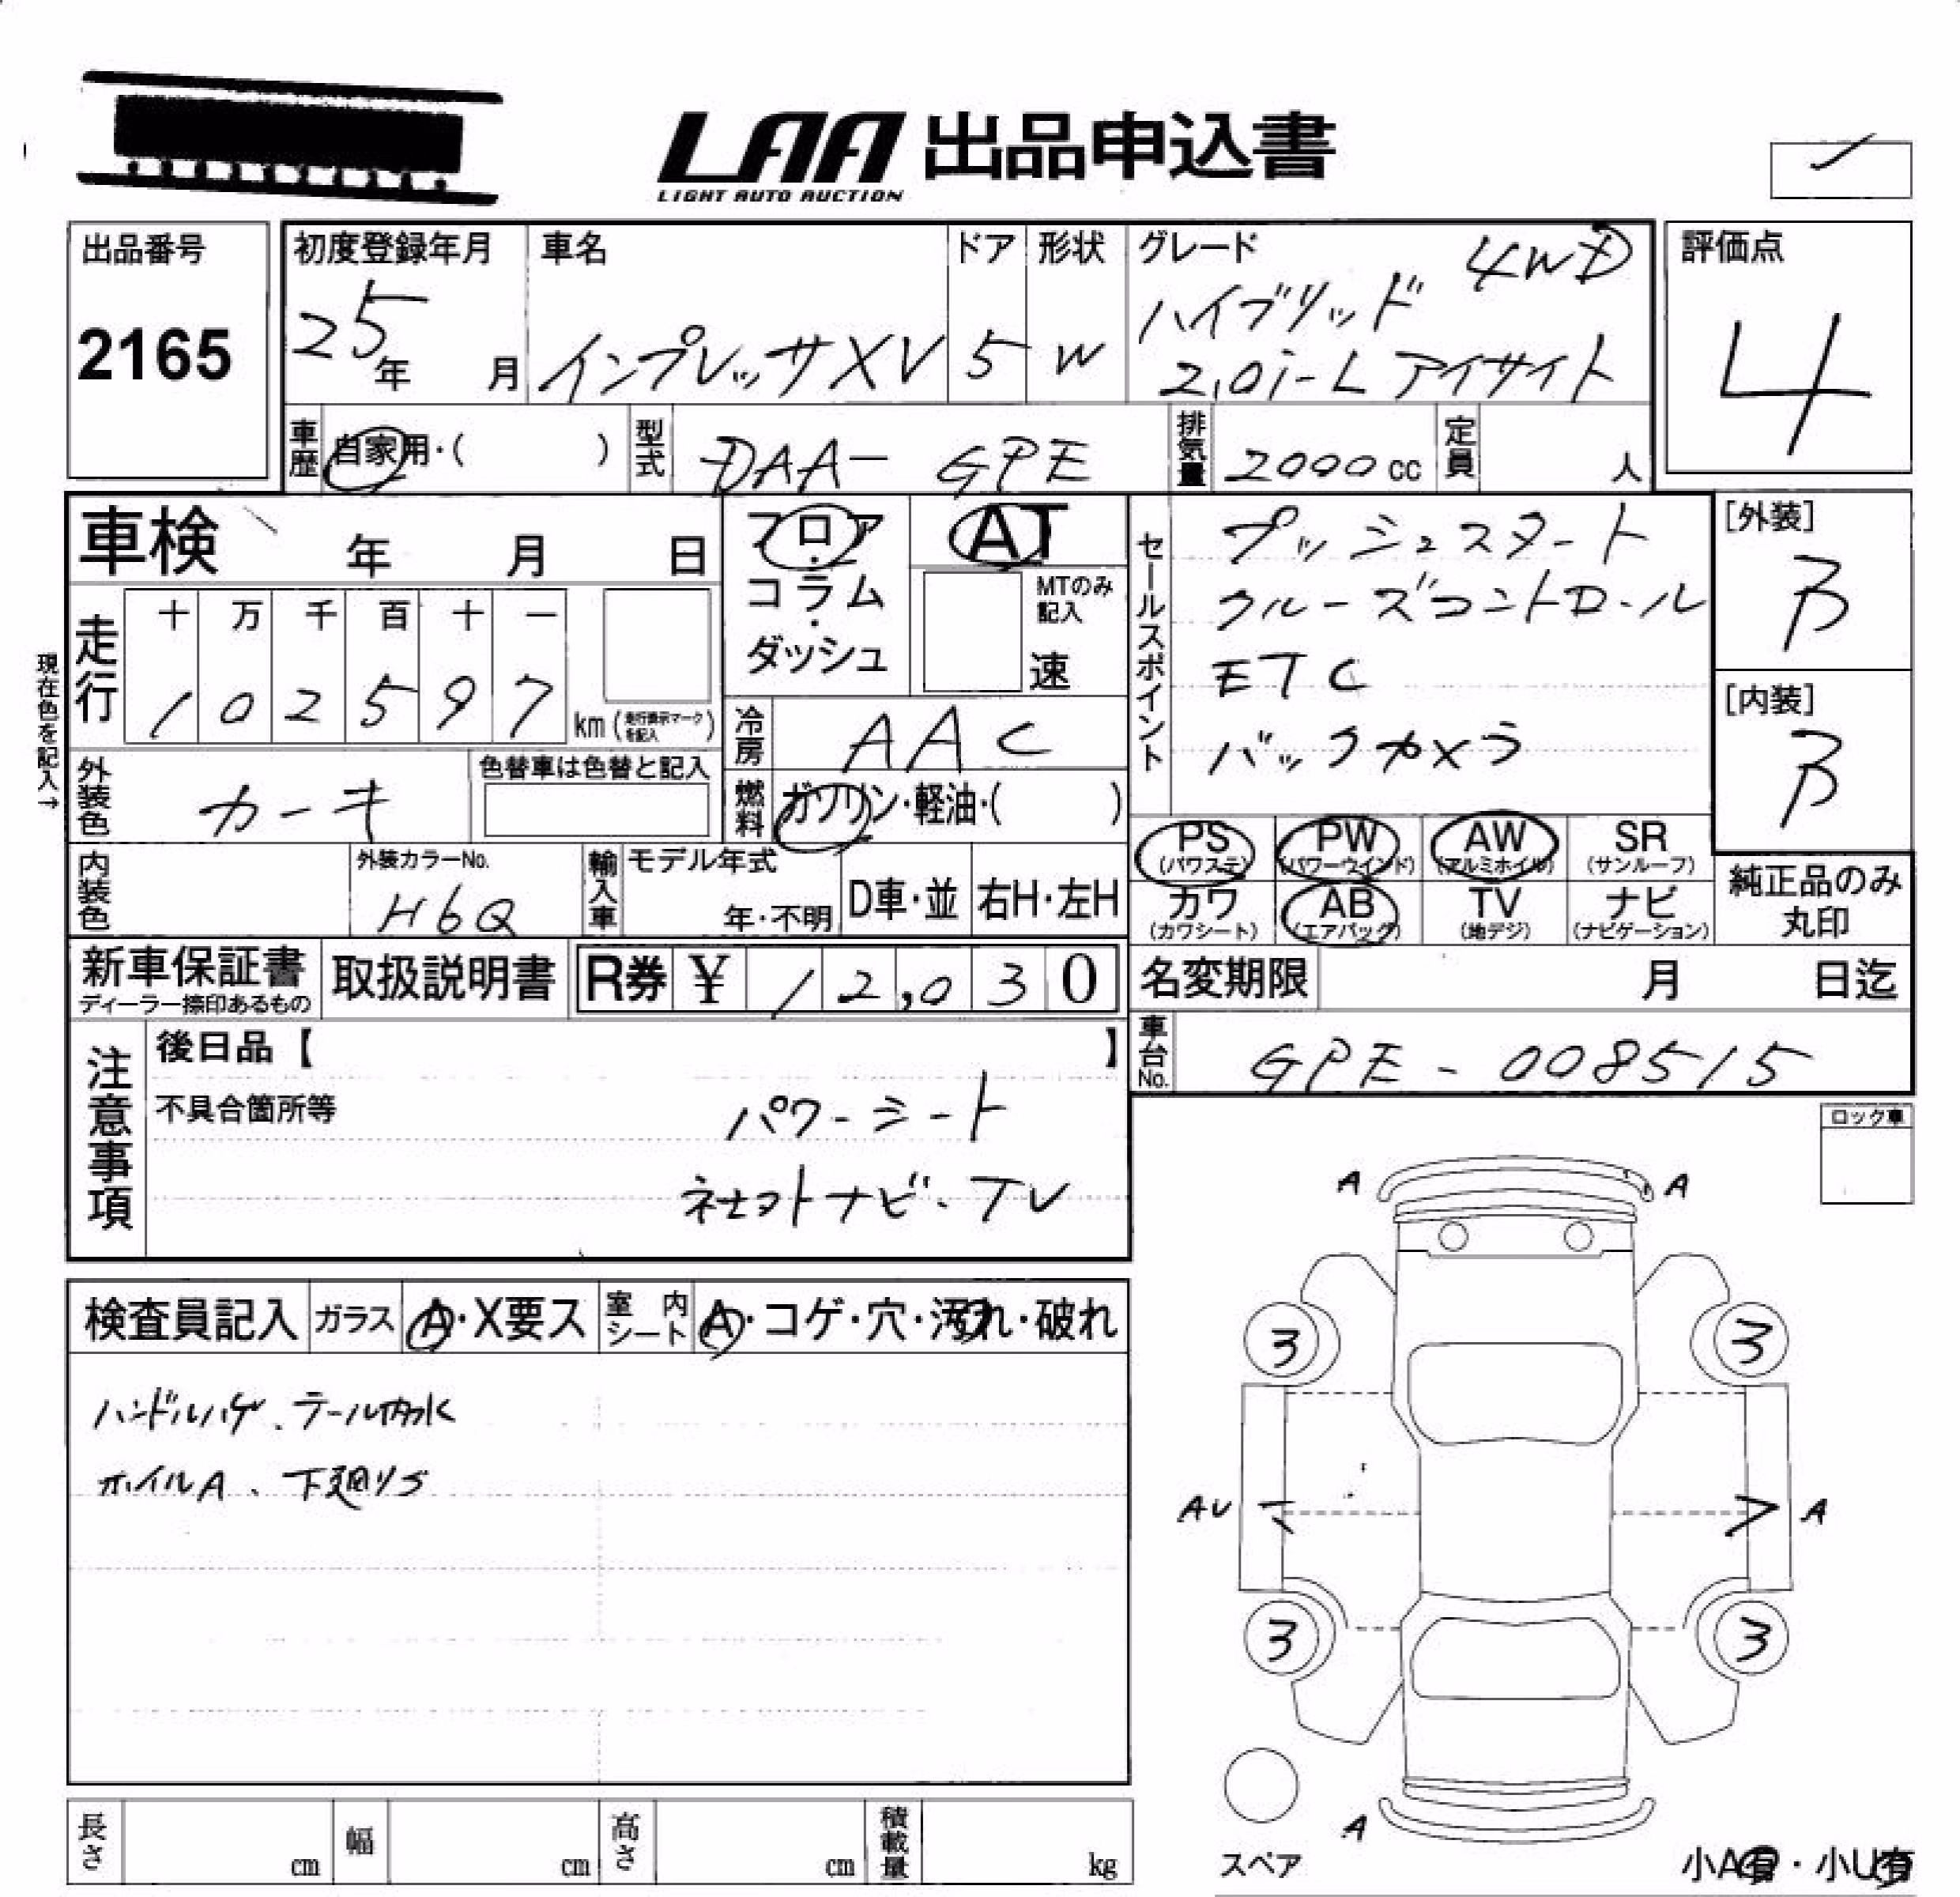 LAA 出品申込書
LIGHT AUTO AUCTION
出品番号
2165
初度登録年月
25年 月
車名
インプレッサXV
ドア
5
形状
W
グレード
4WD
ハイブリッド
2.0i-L アイサイト
評価点
4
車歴
自家用・( )
型式
DAA- GPE
排気量
2000 cc
定員
人
車検 年 月 日
フロア
・
コラム
・
ダッシュ
AT
MTのみ
記入
速
セールスポイント
プッシュスタート
クルーズコントロール
ETC
バックカメラ
[外装]
B
[内装]
B
現在色を記入→
走行
十 万 千 百 十 一
1 0 2 5 9 7 km (走行換示マークを記入)
冷房
AAC
外装色
カーキ
色替車は色替と記入
燃料
ガソリン・軽油・( )
PS
(パワステ)
PW
(パワーウインド)
AW
(アルミホイル)
SR
(サンルーフ)
内装色
外装カラーNo.
H6Q
輸入車
モデル年式
年・不明
D車・並
右H・左H
カワ
(カワシート)
AB
(エアバック)
TV
(地デジ)
ナビ
(ナビゲーション)
純正品のみ
丸印
新車保証書
ディーラー捺印あるもの
取扱説明書
R券 ¥ 12,030
名変期限 月 日迄
車台No.
GPE - 008515
注意事項
後日品【 】
不具合箇所等
パワーシート
社外ナビ・TV
ロック車
A A
検査員記入
ガラス
A・X要ス
室内シート
A・コゲ・穴・汚れ・破れ
ハンドルハゲ、テール内水
ホイルA、下廻りサ
3 3
AU A
3 3
A
スペア
小A有・小U有
長さ cm
幅 cm
高さ cm
積載量 kg